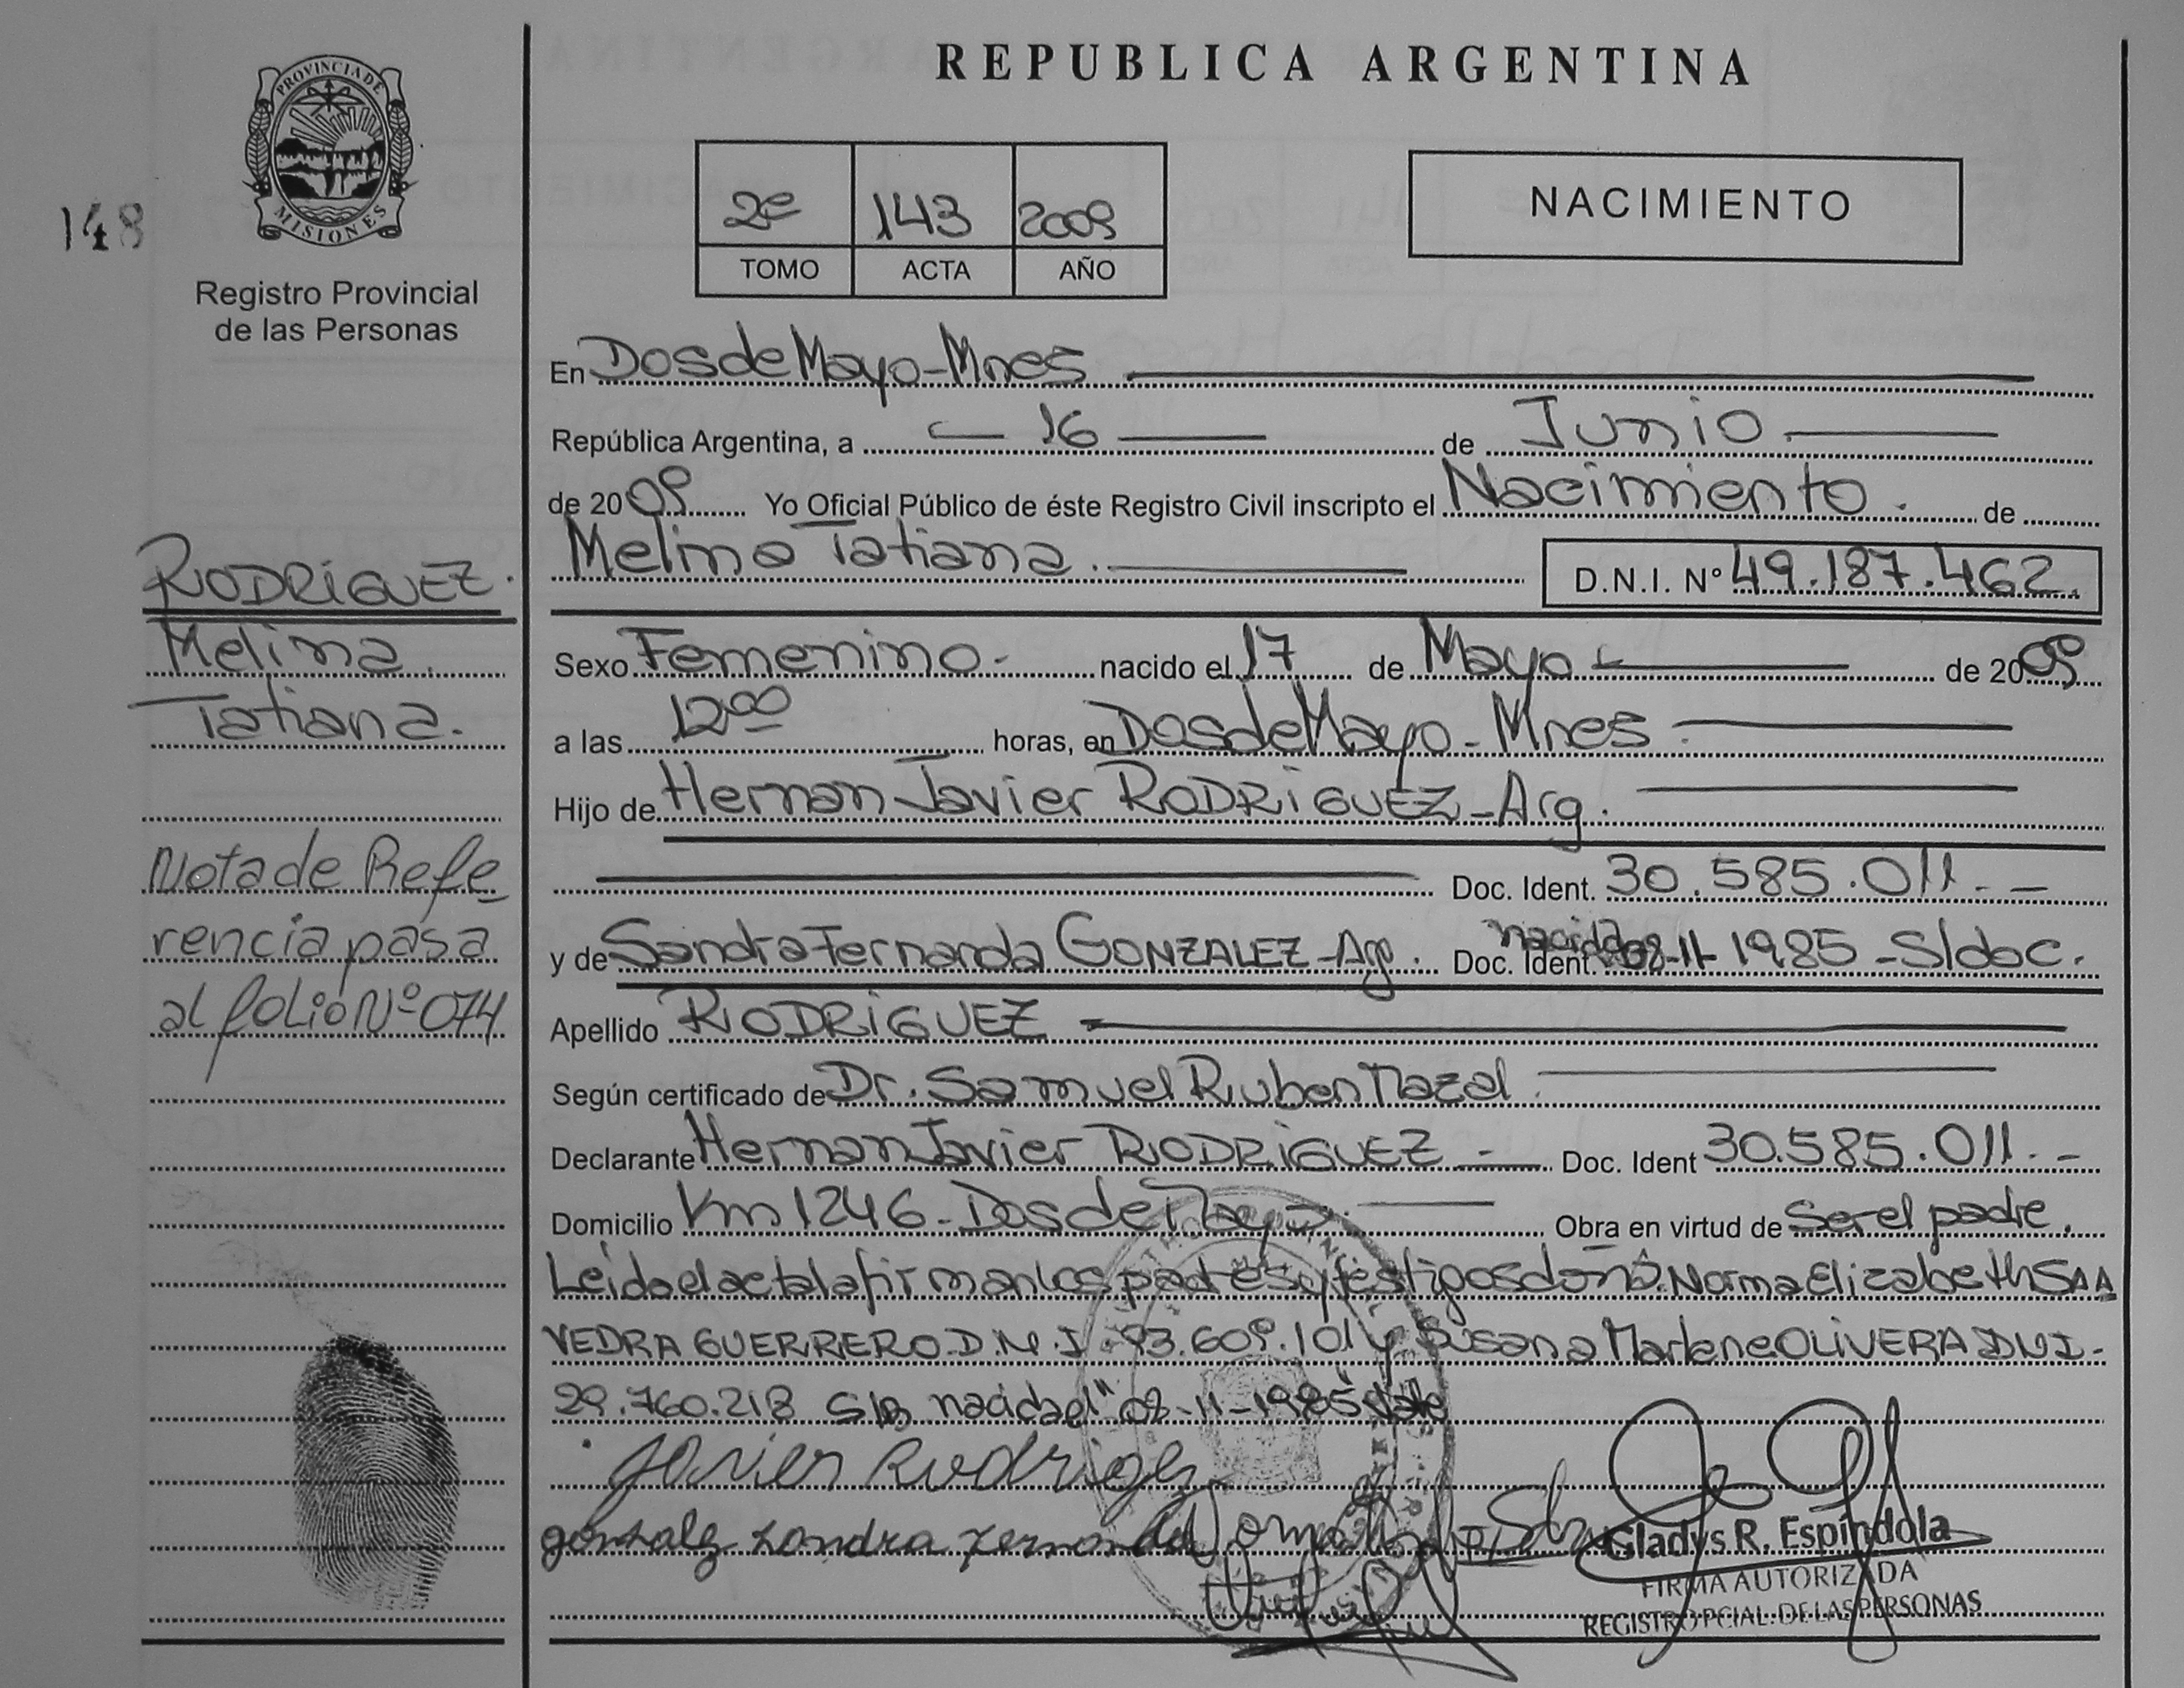 REPUBLICA ARGENTINA
PROVINCIA DE
MISIONES
148
Registro Provincial
de las Personas
2º 143 2009
TOMO ACTA AÑO
NACIMIENTO
En Dos de Mayo - Mnes
República Argentina, a 16 de Junio
de 2009 Yo Oficial Público de éste Registro Civil inscripto el Nacimiento. de
Melina Tatiana. D.N.I. Nº 49.187.462.
RODRIGUEZ.
Melina
Tatiana.
Nota de Refe-
rencia pasa
al folio Nº 074
Sexo Femenino. nacido el 17 de Mayo de 2009
a las 12⁰⁰ horas, en Dos de Mayo - Mnes
Hijo de Hernan Javier RODRIGUEZ - Arg.
Doc. Ident. 30.585.011. -
y de Sandra Fernanda GONZALEZ - Arg. Doc. Ident. nacida 08-11-1985 - S/doc.
Apellido RODRIGUEZ
Según certificado de Dr. Samuel Ruben Nazal
Declarante Hernan Javier RODRIGUEZ - Doc. Ident 30.585.011. -
Domicilio Km 1246 - Dos de Mayo. Obra en virtud de Ser el padre.
Leida el acta la firman los padres y testigos doña. Norma Elizabeth SAA
VEDRA GUERRERO D.N.I. 93.609.101 y Susana Marlene OLIVERA DNI-
29.760.218 S/B nacida el "08-11-1985" Vale
Javier Rodrigez
gonzalez sandra fernanda
Gladys R. Espíndola
FIRMA AUTORIZADA
REGISTRO PCIAL. DE LAS PERSONAS